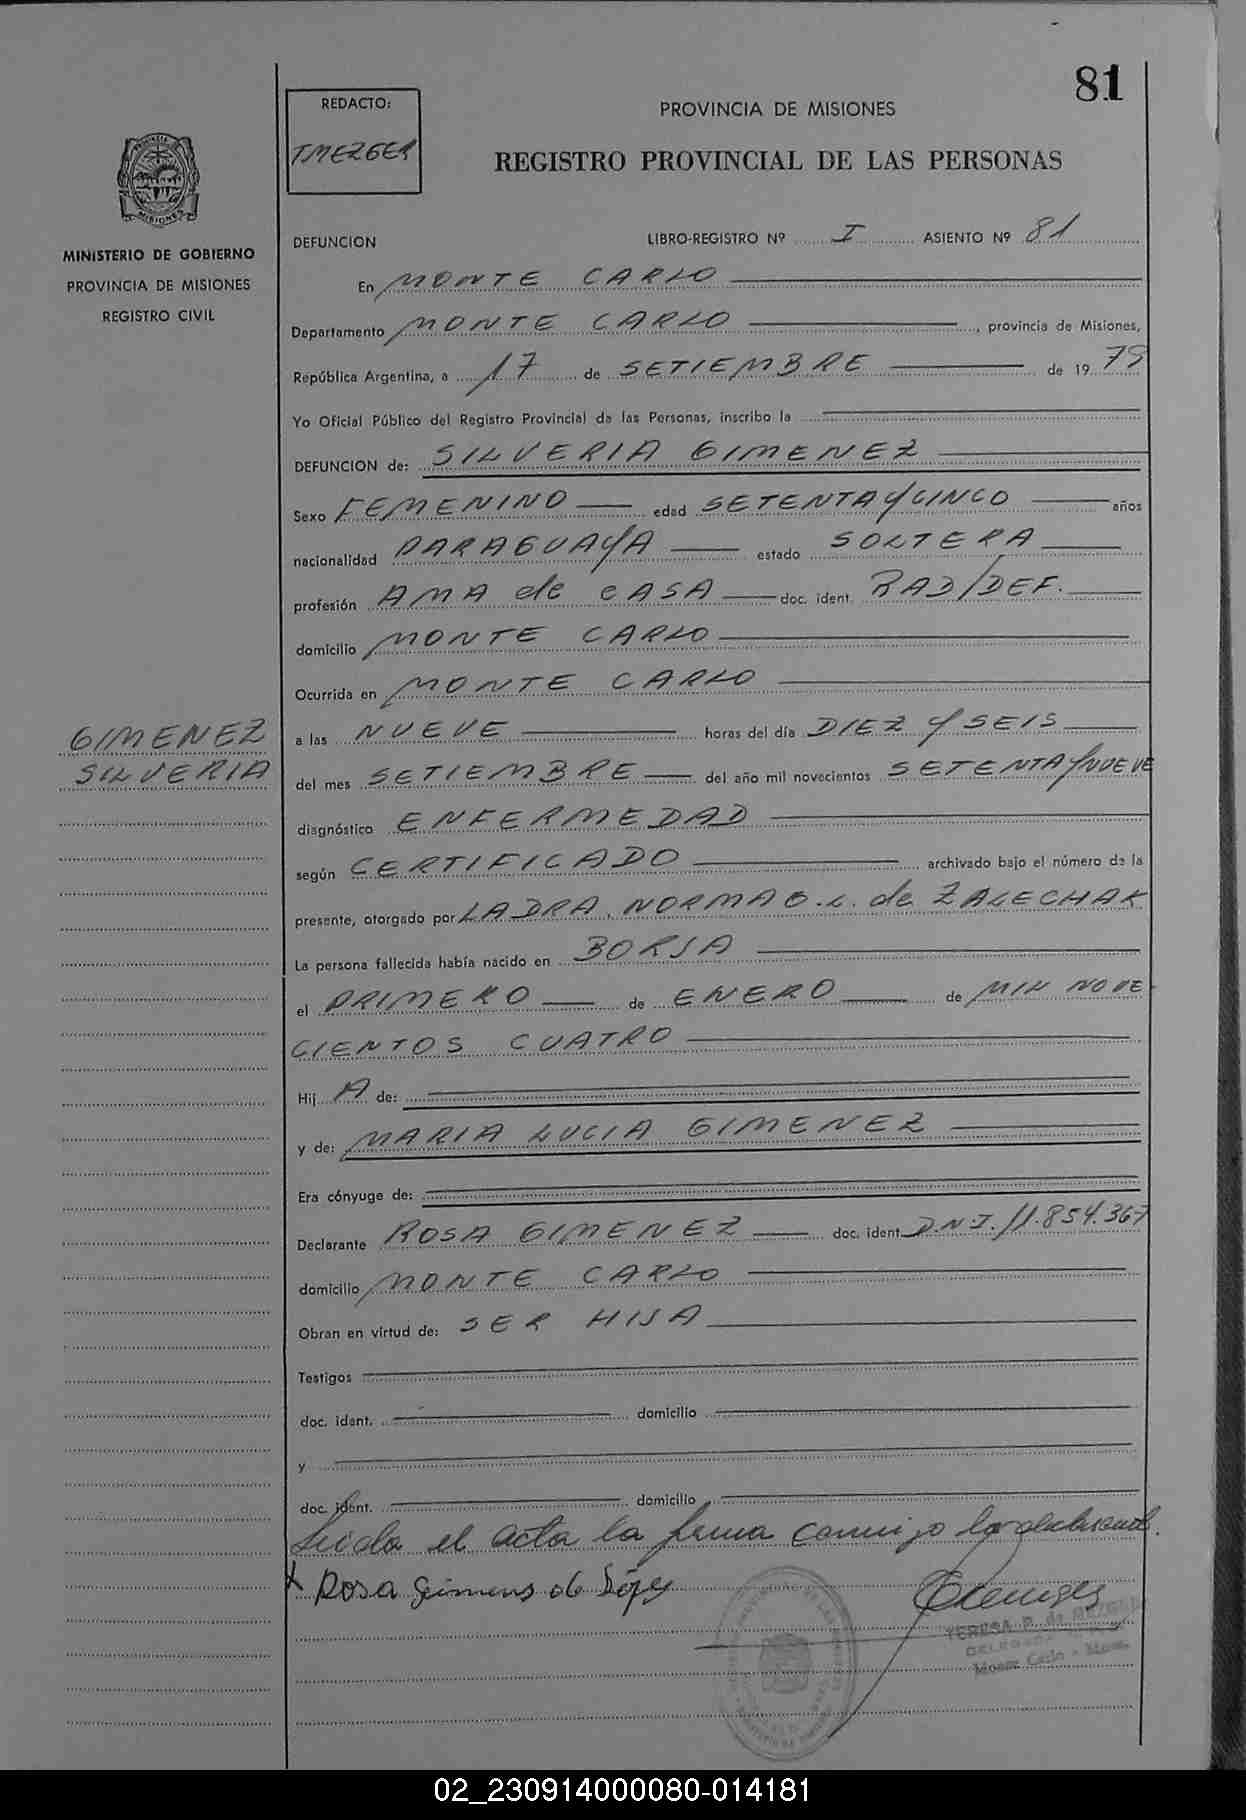 81
REDACTO:
TMEZGER
PROVINCIA DE MISIONES
REGISTRO PROVINCIAL DE LAS PERSONAS
MISIONES
MINISTERIO DE GOBIERNO
PROVINCIA DE MISIONES
REGISTRO CIVIL
DEFUNCION LIBRO-REGISTRO Nº I ASIENTO Nº 81
En MONTE CARLO
Departamento MONTE CARLO, provincia de Misiones,
República Argentina, a 17 de SETIEMBRE de 1979
Yo Oficial Público del Registro Provincial de las Personas, inscribo la
DEFUNCION de: SILVERIA GIMENEZ
Sexo FEMENINO edad SETENTA Y CINCO años
nacionalidad PARAGUAYA estado SOLTERA
profesión AMA de CASA doc. ident. RAD/DEF.
domicilio MONTE CARLO
Ocurrida en MONTE CARLO
GIMENEZ
SILVERIA
a las NUEVE horas del día DIEZ Y SEIS
del mes SETIEMBRE del año mil novecientos SETENTA Y NUEVE
diagnóstico ENFERMEDAD
según CERTIFICADO archivado bajo el número de la
presente, otorgado por LADRA, NORMA B. L. de ZALECHAK
La persona fallecida había nacido en BORJA
el PRIMERO de ENERO de MIL NOVE-
CIENTOS CUATRO
Hij A de:
y de: MARIA LUCIA GIMENEZ
Era cónyuge de:
Declarante ROSA GIMENEZ doc. ident. DNI. 11.854.367
domicilio MONTE CARLO
Obran en virtud de: SER HIJA
Testigos
doc. ident. domicilio
y
doc. ident. domicilio
Leida el acta la firma conmigo la declarante.
x Rosa
TERESA P. de MEZGER
DELEGADA
Monte Carlo - Mnes.
02_230914000080-014181